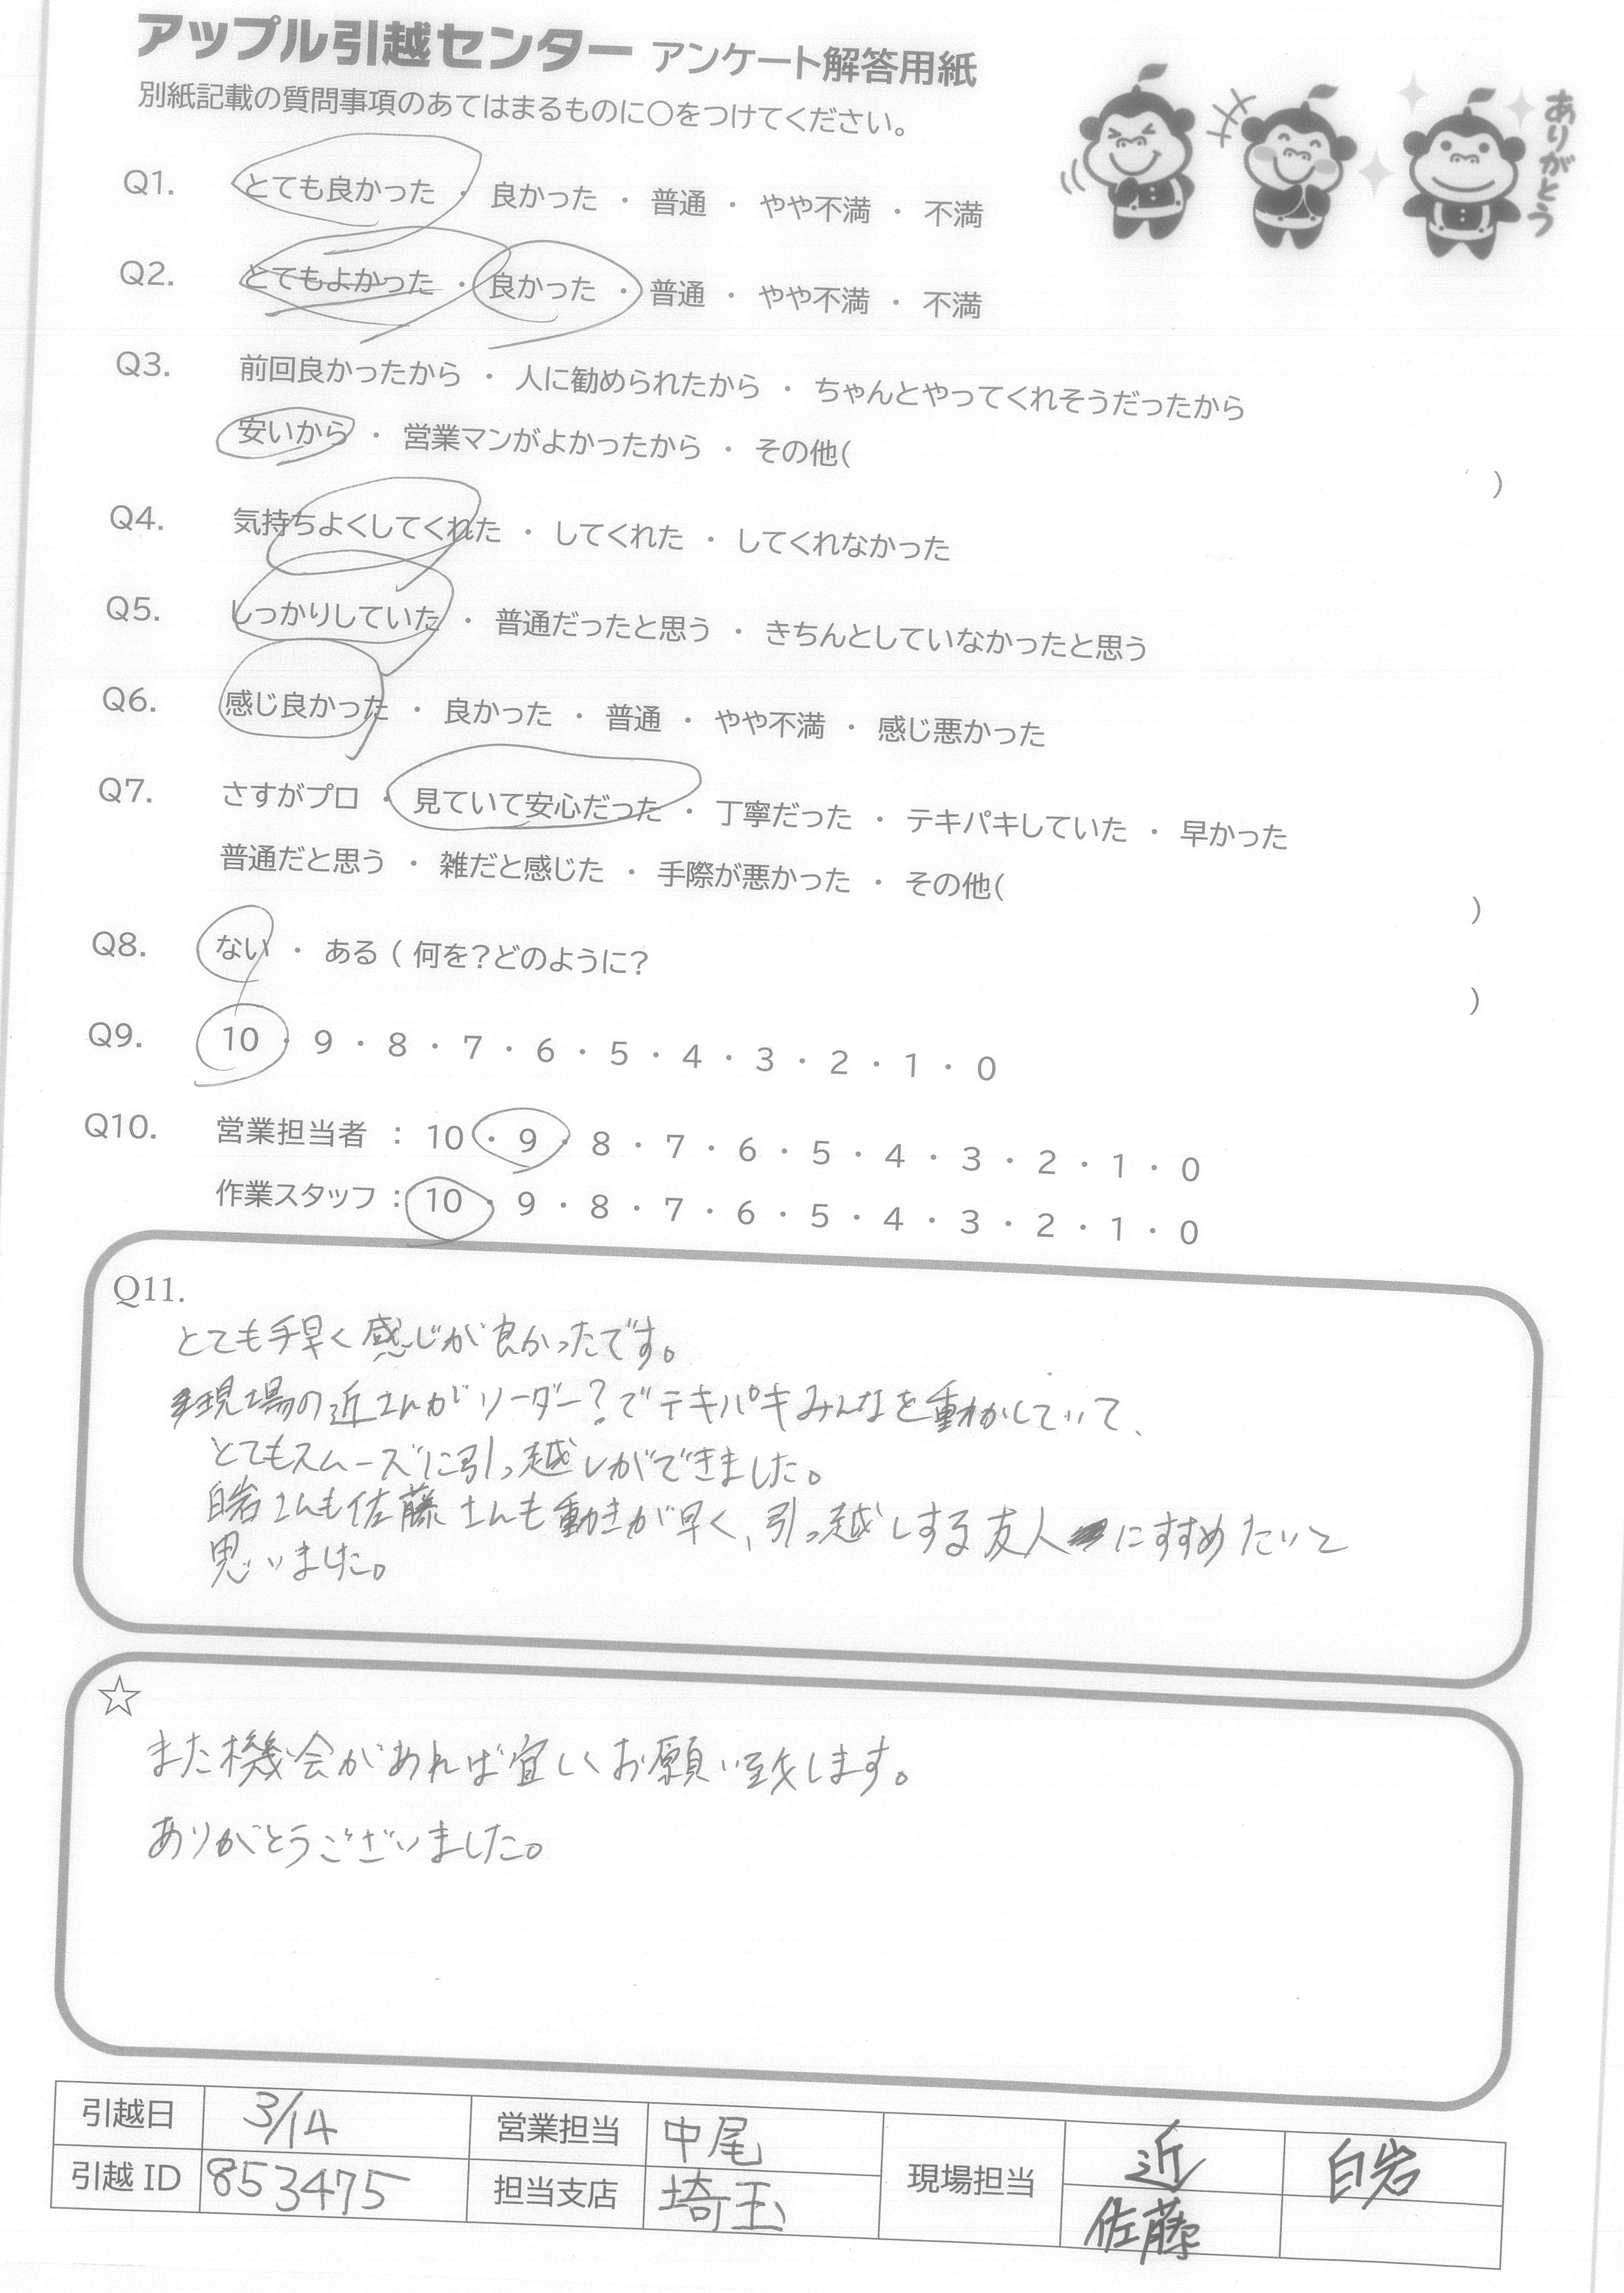 アップル引越センター アンケート解答用紙
別紙記載の質問事項のあてはまるものに○をつけてください。
ありがとう
Q1. とても良かった ・ 良かった ・ 普通 ・ やや不満 ・ 不満
Q2. とてもよかった ・ 良かった ・ 普通 ・ やや不満 ・ 不満
Q3. 前回良かったから ・ 人に勧められたから ・ ちゃんとやってくれそうだったから
安いから ・ 営業マンがよかったから ・ その他( )
Q4. 気持ちよくしてくれた ・ してくれた ・ してくれなかった
Q5. しっかりしていた ・ 普通だったと思う ・ きちんとしていなかったと思う
Q6. 感じ良かった ・ 良かった ・ 普通 ・ やや不満 ・ 感じ悪かった
Q7. さすがプロ ・ 見ていて安心だった ・ 丁寧だった ・ テキパキしていた ・ 早かった
普通だと思う ・ 雑だと感じた ・ 手際が悪かった ・ その他( )
Q8. ない ・ ある ( 何を?どのように? )
Q9. 10 ・ 9 ・ 8 ・ 7 ・ 6 ・ 5 ・ 4 ・ 3 ・ 2 ・ 1 ・ 0
Q10. 営業担当者 : 10 ・ 9 ・ 8 ・ 7 ・ 6 ・ 5 ・ 4 ・ 3 ・ 2 ・ 1 ・ 0
作業スタッフ : 10 ・ 9 ・ 8 ・ 7 ・ 6 ・ 5 ・ 4 ・ 3 ・ 2 ・ 1 ・ 0
Q11.
とても手早く感じが良かったです。
現場の近さんがリーダー?でテキパキみんなを動かしていて、
とてもスムーズに引っ越しができました。
白岩さんも佐藤さんも動きが早く、引っ越しする友人にすすめたいと
思いました。
☆
また機会があれば宜しくお願い致します。
ありがとうございました。
引越日 3/14 営業担当 中尾 現場担当 近 白岩
引越 ID 853475 担当支店 埼玉 佐藤